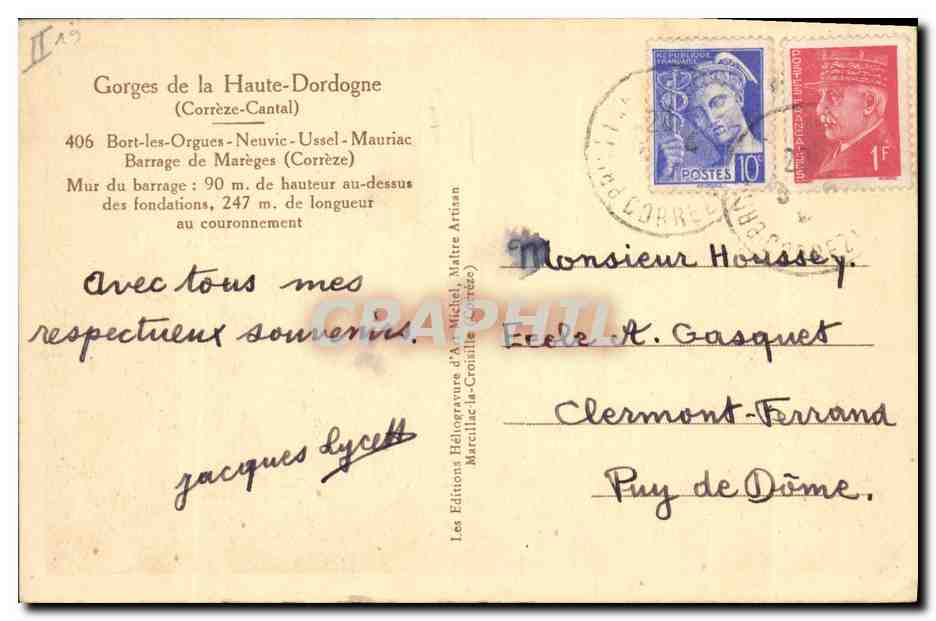 II 19
Gorges de la Haute-Dordogne
(Corrèze-Cantal)
406 Bort-les-Orgues - Neuvic - Ussel - Mauriac
Barrage de Marèges (Corrèze)
Mur du barrage : 90 m. de hauteur au-dessus
des fondations, 247 m. de longueur
au couronnement
avec tous mes
respectueux souvenirs.
jacques Lycett
Les Editions Héliogravure d'Art Michel, Maître Artisan
Marcillac-la-Croisille (Corrèze)
REPUBLIQUE
FRANÇAISE
10c
POSTES
POSTES FRANÇAISES
1F
CORREZE
Monsieur Houssey.
Ecole A. Gasquet
Clermont-Ferrand
Puy de Dôme.
CRAPHTI